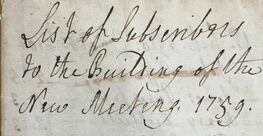 List of Subscribors
to the Building of the
New Meeting. 1759.